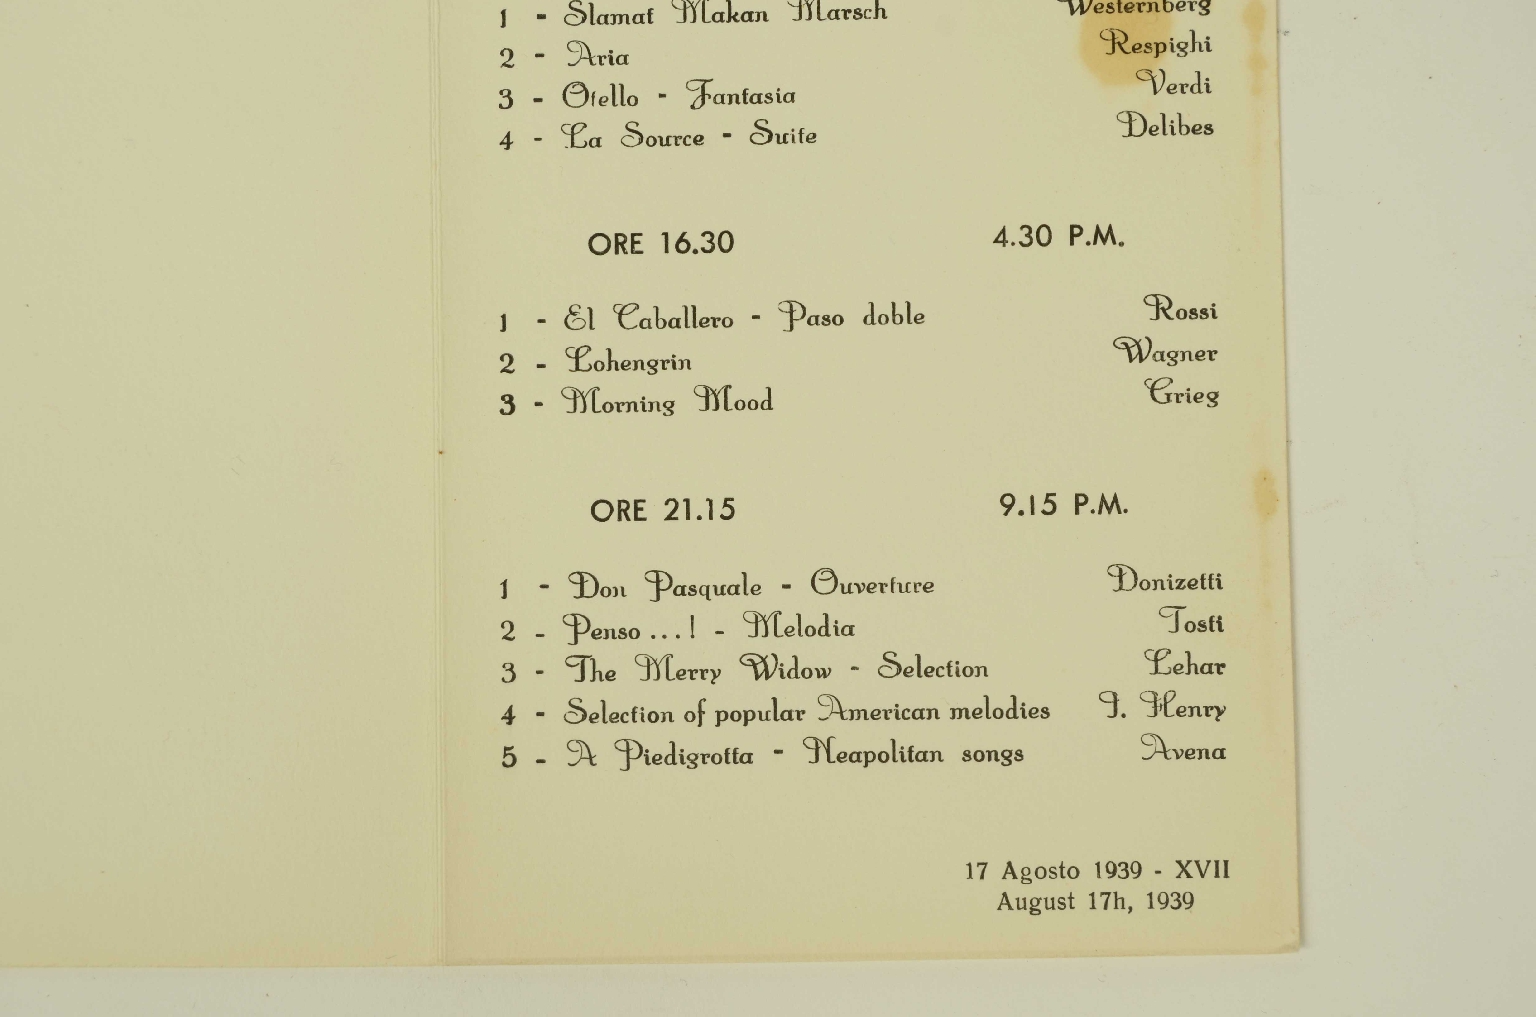 1 - Slamat Makan Marsch Westernberg
2 - Aria Respighi
3 - Otello - Fantasia Verdi
4 - La Source - Suite Delibes
ORE 16.30 4.30 P.M.
1 - El Caballero - Paso doble Rossi
2 - Lohengrin Wagner
3 - Morning Mood Grieg
ORE 21.15 9.15 P.M.
1 - Don Pasquale - Ouverture Donizetti
2 - Penso ...! - Melodia Tosti
3 - The Merry Widow - Selection Lehar
4 - Selection of popular American melodies I. Henry
5 - A Piedigrotta - Neapolitan songs Avena
17 Agosto 1939 - XVII
August 17h, 1939